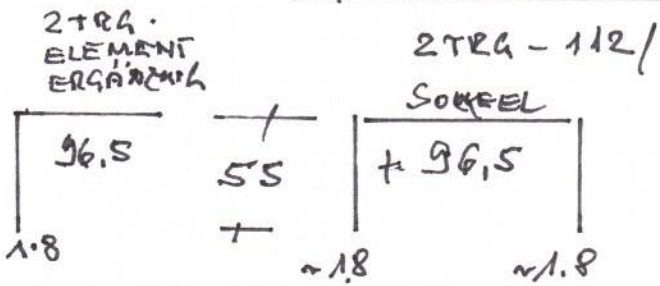 2TRG.
ELEMENT
ERGÄNZUNG
2TRG - 112/
SOCKEL
96,5
55
+ 96,5
1.8
~18
~1.8